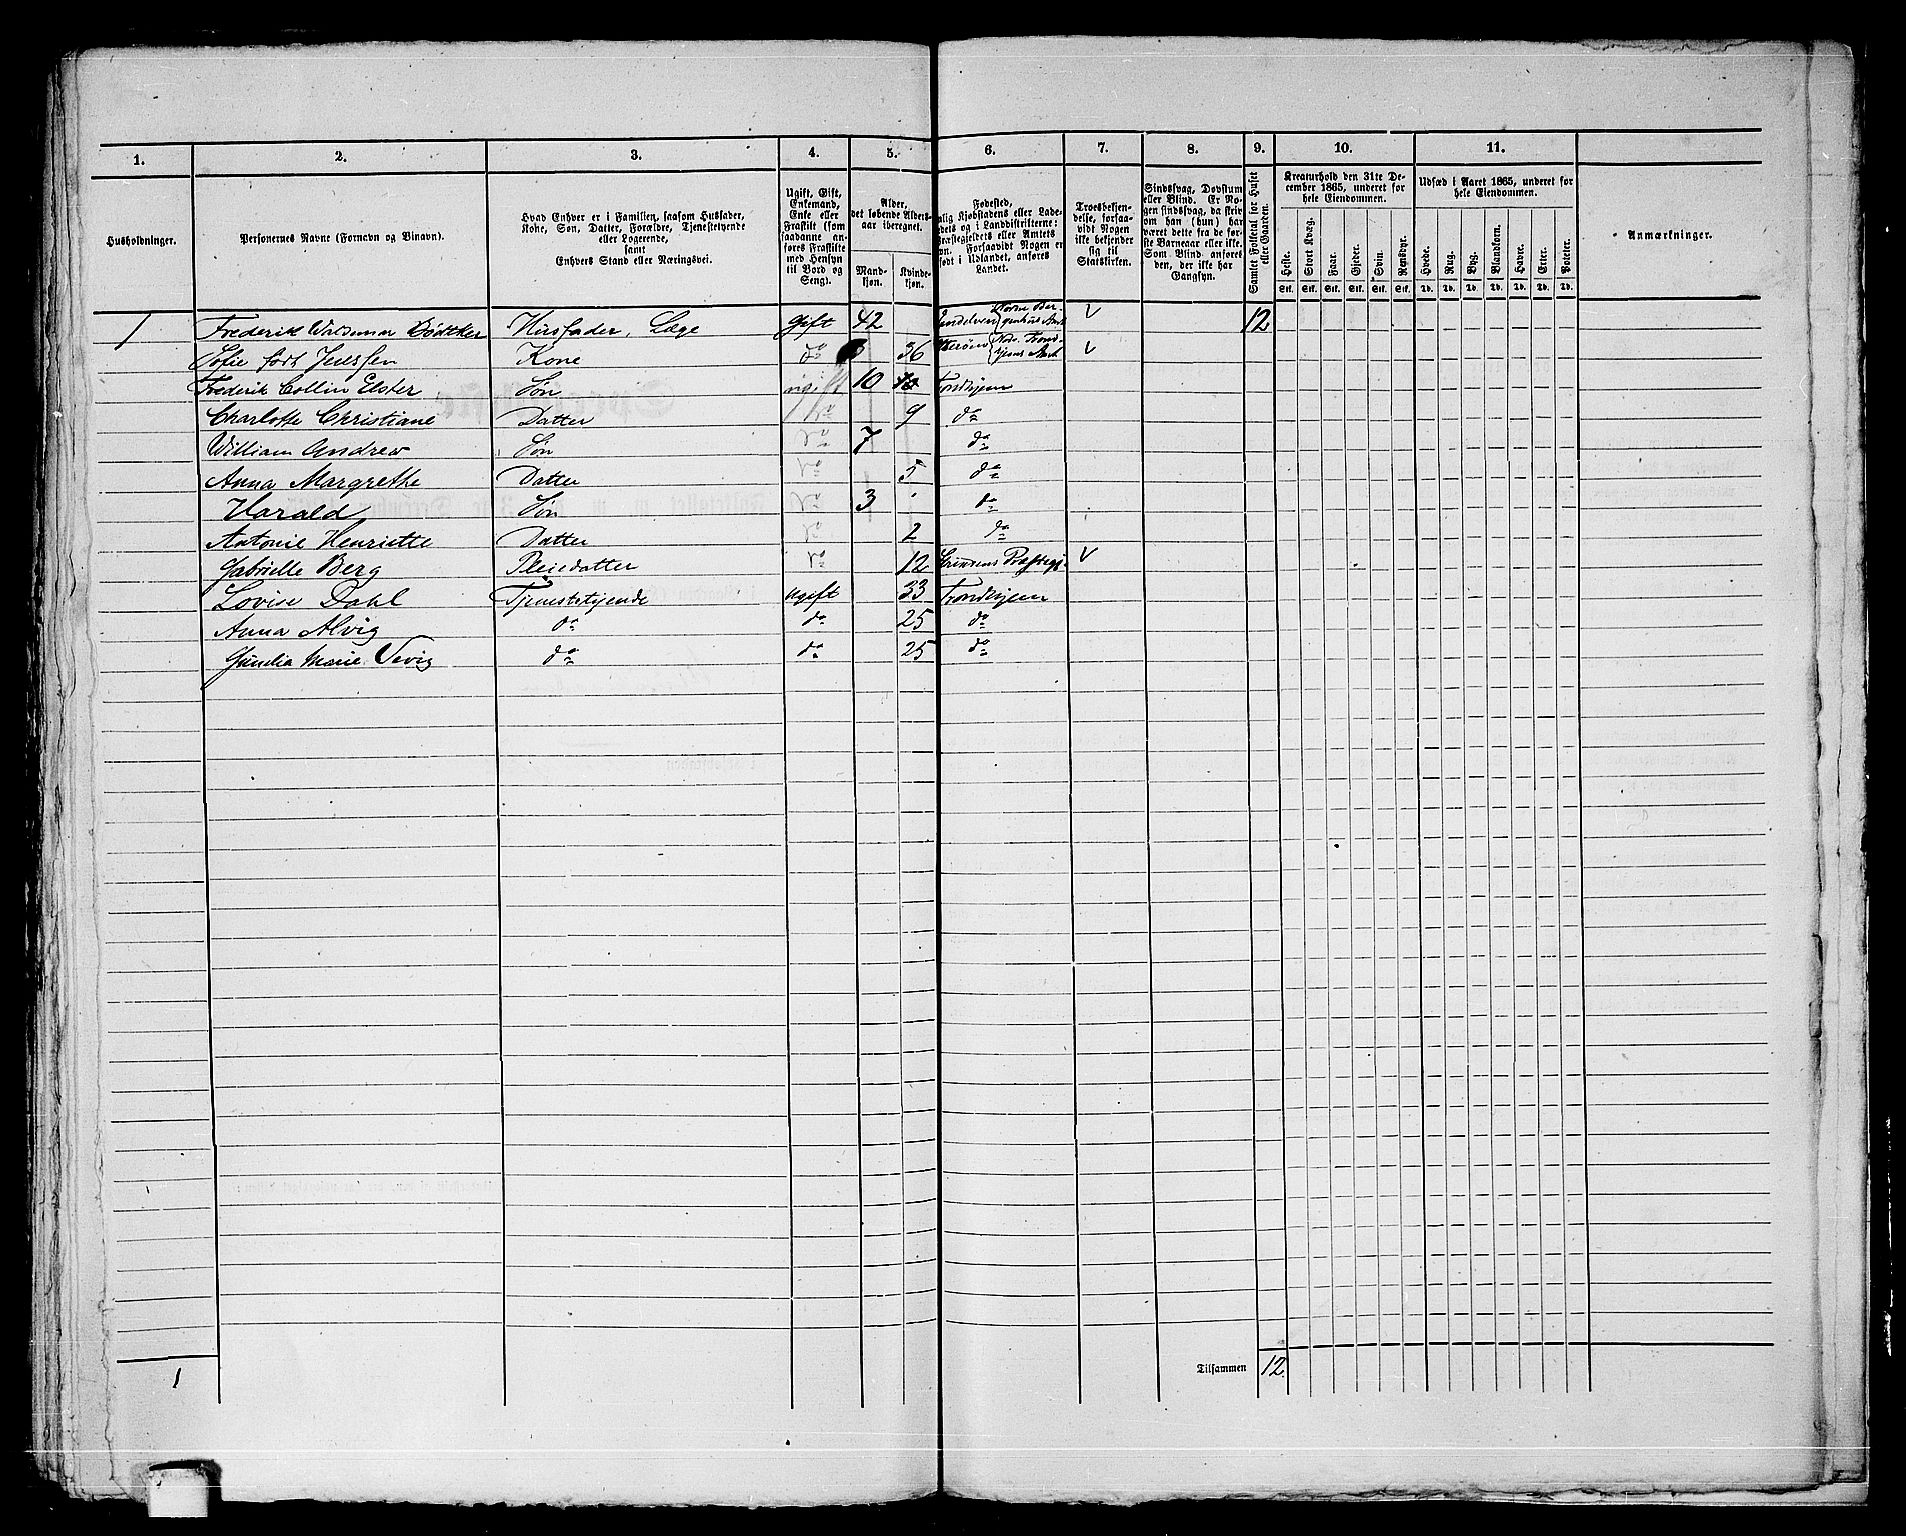 1. 2. 3. 4. 5. 6. 7. 8. 9. 10. 11.
Husholdninger.
Personernes Navne (Fornavn og Binavn).
Hvad Enhver er i Familien, saasom Husfader,
Kone, Søn, Datter, Forældre, Tjenestetyende
eller Logerende,
samt
Enhvers Stand eller Næringsvei.
Ugift, Gift,
Enkemand,
Enke eller
Fraskilt (som
saadanne an-
føres Fraskilte
med Hensyn
til Bord og
Seng).
Alder,
det løbende Alders-
aar iberegnet.
Mand-
kjøn.
Kvinde-
kjøn.
Fødested,
alig Kjøbstadens eller Lade-
dets og i Landdistrikterne:
Præstegjeldets eller Amtets
vn. Forsaavidt Nogen er
født i Udlandet, anføres
Landet.
Troesbekjen-
delse, forsaa-
vidt Nogen
ikke bekjender
sig til
Statskirken.
Sindssvag, Døvstum
eller Blind. Er No-
gen sindssvag, da skriv
om han (hun) har
været dette fra de før-
ste Barneaar eller ikke.
Som Blind anføres
den, der ikke har
Gangsyn.
Samlet Folketal for Huset
eller Gaarden.
Kreaturhold den 31te De-
cember 1865, underet for
hele Eiendommen.
Heste. Stort Kvæg. Faar. Gjeder. Svin. Rensdyr.
Stk. Stk. Stk. Stk. Stk. Stk.
Udsæd i Aaret 1865, underet for
hele Eiendommen.
Hvede. Rug. Byg. Blandkorn. Havre. Erter. Poteter.
Td. Td. Td. Td. Td. Td. Td.
Anmærkninger.
1 Frederik Waldemar Bødtker Husfader, Læge Gift 42 12
Sofie født Kone do 36
Frederik Collin Elster Søn ugift 10 Trondhjem
Charlotte Christiane Datter do 9 do
William Andrew Søn do 7 do
Anna Margrethe Datter do 5 do
Harald Søn do 3 do
Antonie Henriette Datter do 2 do
Gabrielle Berg Pleiedatter do 12
Lovise Dahl Tjenestetyende Ugift 33 Trondhjem
Anna Alvig do do 25 do
Marie do do 25 do
1 Tilsammen 12